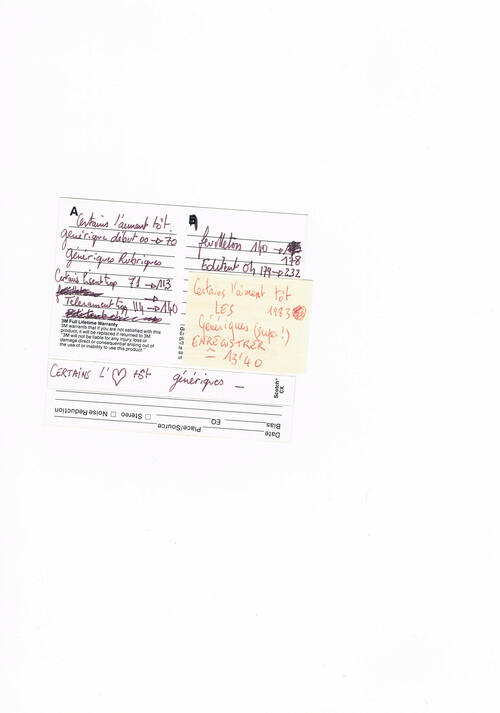 A
Certains l'aiment tôt.
générique début 00 → 70
Génériques Rubriques
Certains lisent trop 71 → 113
Télérament trop 114 → 140
3M Full Lifetime Warranty
3M warrants that if you are not satisfied with this
product, it will be replaced if returned to 3M.
"3M will not be liable for any injury, loss or
damage direct or consequential arising out of
the use of or inability to use this product."
feuilleton 140 →
178
179 → 232
Certains l'aiment tôt
LES 1983
Génériques (supe!)
ENREGISTRER
= 13'40
CERTAINS L'♡ tôt génériques —
Scotch®
CX
Bias EQ □ Stereo □ Noise Reduction
Date Place/Source